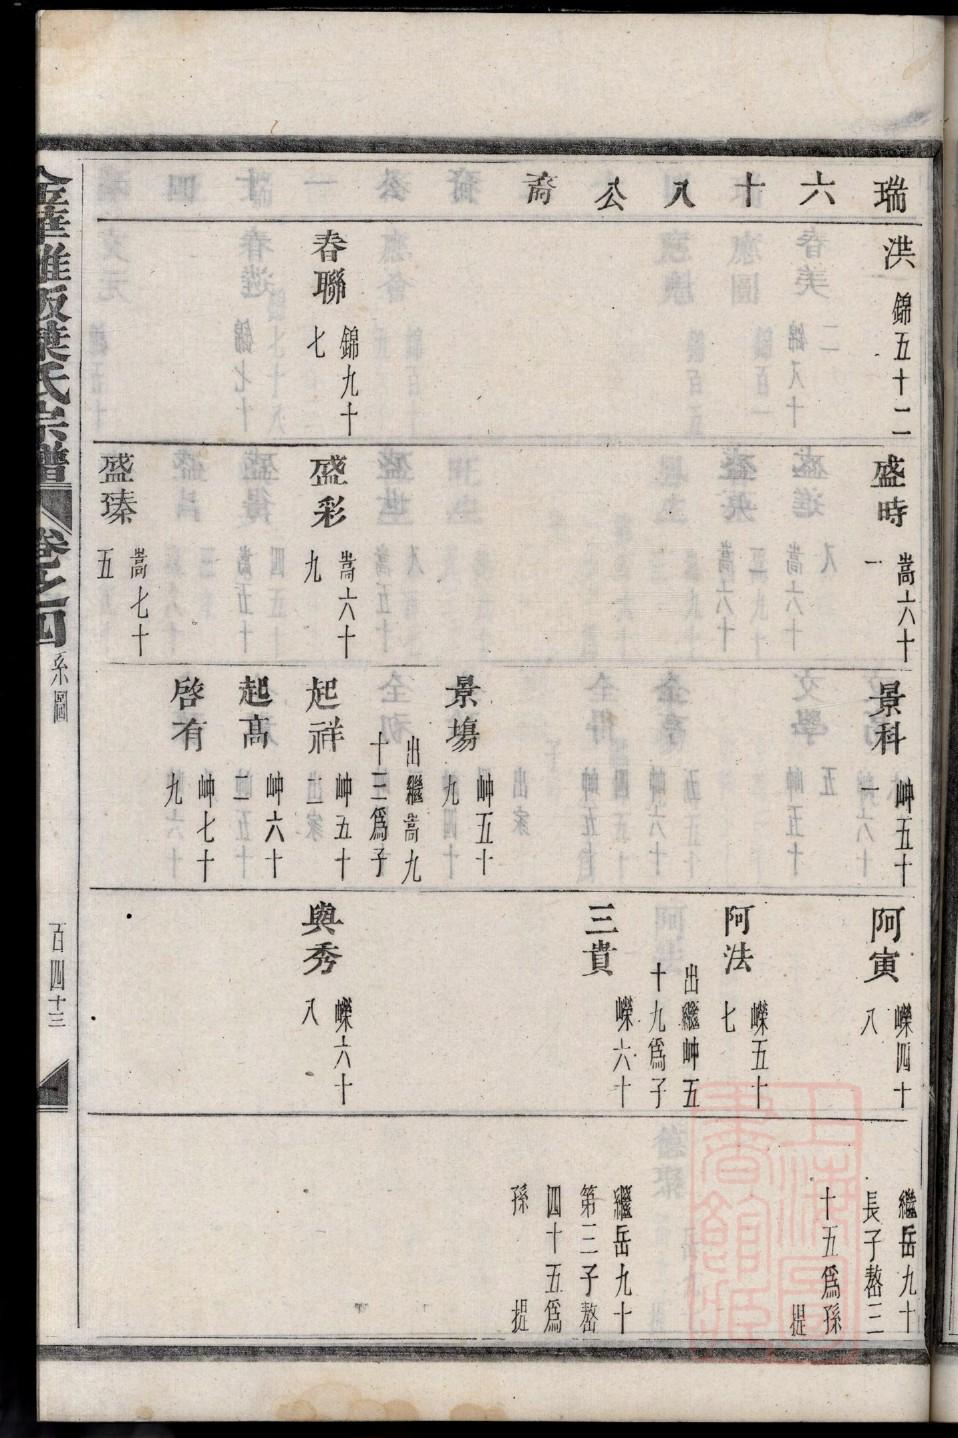 瑞六十八公裔
洪
錦五十二
春聯
錦九十
七
盛時
嵩六十
一
盛彩
嵩六十
九
盛瑧
嵩七十
五
景科
岫五十
一
景塲
岫五十
九
出繼嵩九
十三爲子
起祥
岫五十
二
起高
岫六十
二
啓有
岫七十
九
阿寅
嶸四十
八
阿法
嶸五十
七
出繼岫五
十九爲子
三貴
嶸六十
與秀
嶸六十
八
繼岳九十
長子嶅三
十五爲孫
提
繼岳九十
第三子嶅
四十五爲
孫 提
氏宗譜
卷之四
系圖
百四十三